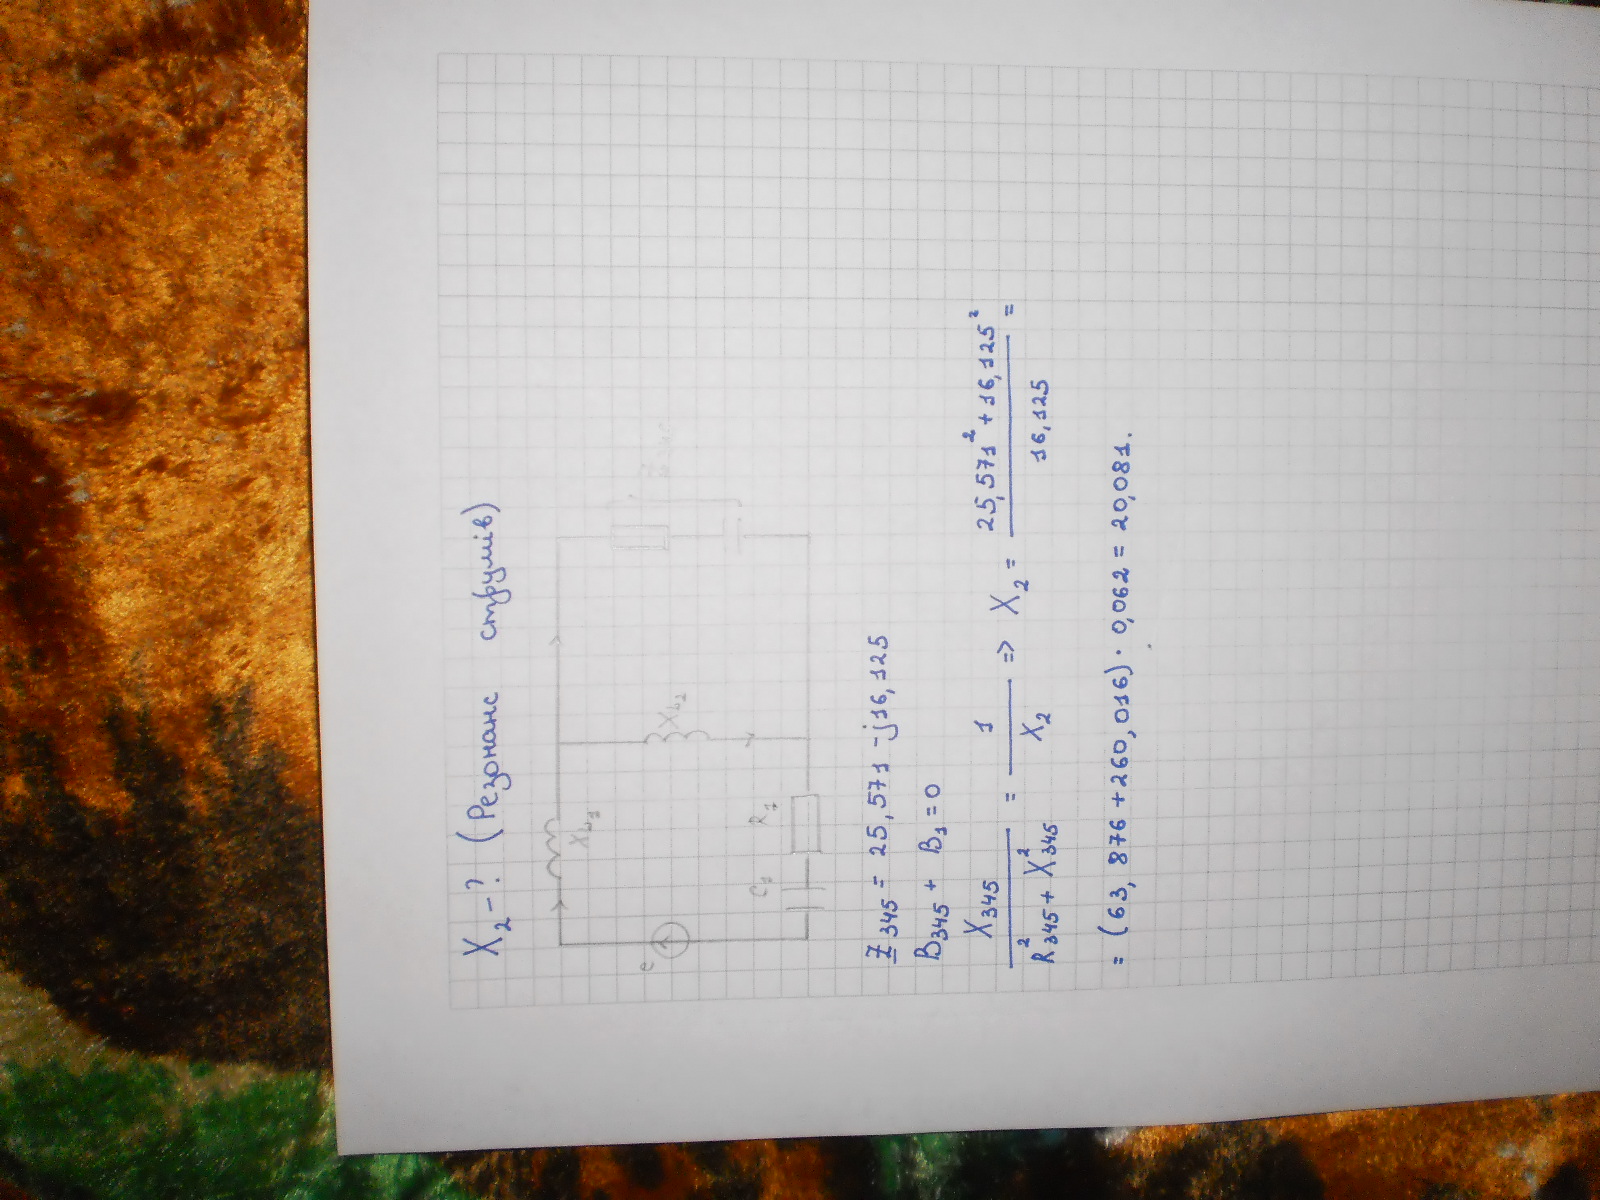 X₂ - ? (Резонанс струмів)
X_L₁
e
X_L₂
C₁
R₁
Z₃₄₅ = 25,571 - j16,125
B₃₄₅ + B₁ = 0
X₃₄₅ / (R²₃₄₅ + X²₃₄₅) = 1 / X₂ => X₂ = (25,571² + 16,125²) / 16,125 =
= (63,876 + 260,016) · 0,062 = 20,081.